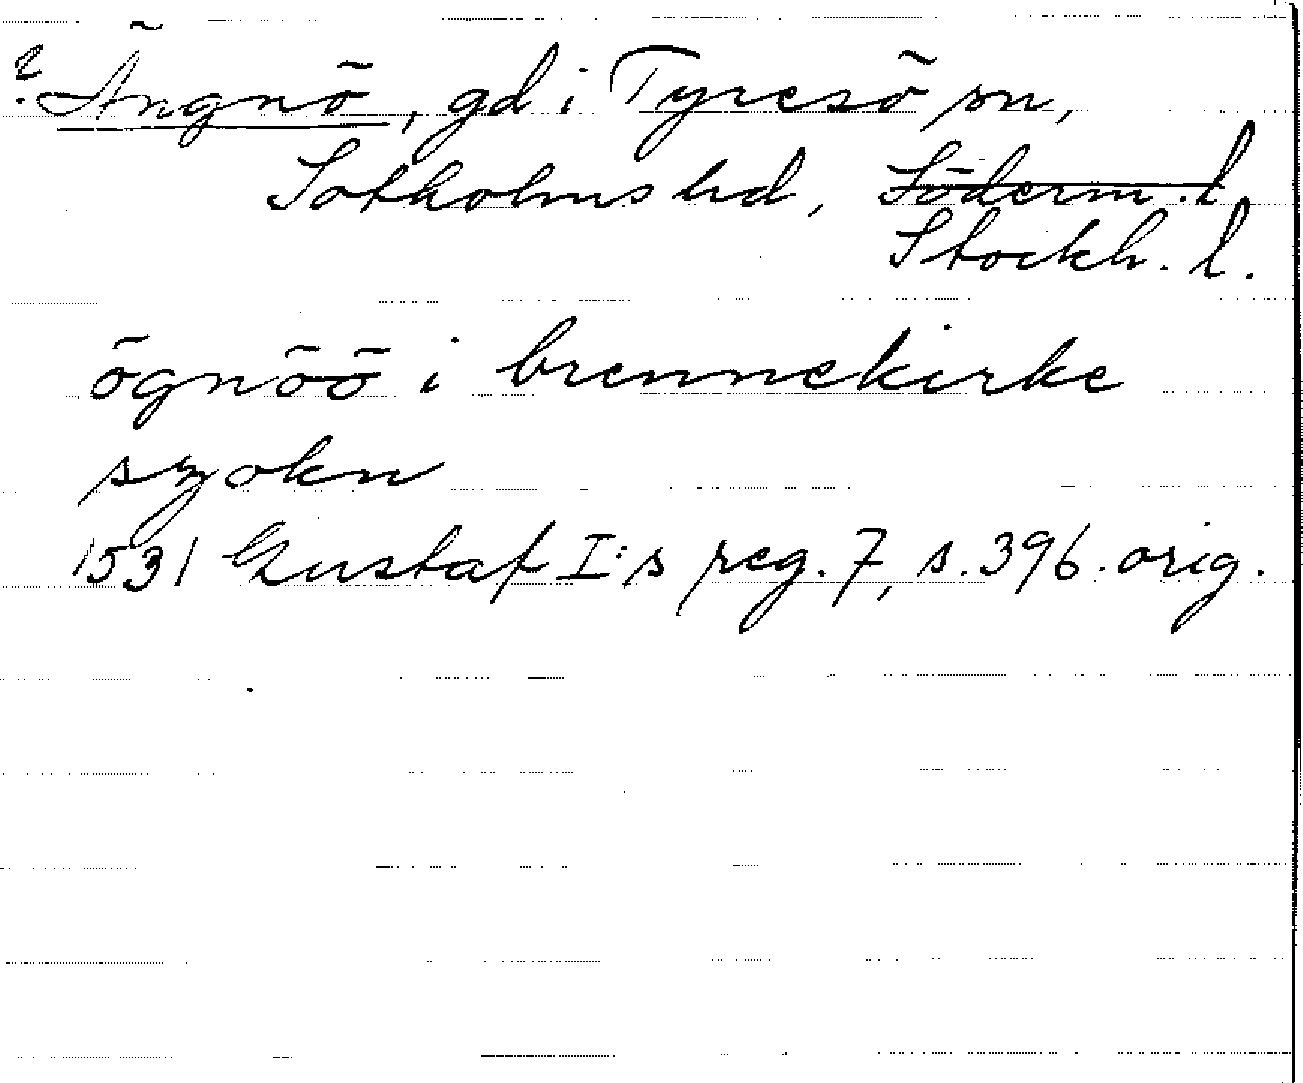 ? Ängnö, gd i Tyresö sn,
Sotholms hd, Söderm. l
Stockh. l.
ögnöö i brennekirke
szokn
1531 Gustaf I:s reg. 7, s. 396. orig.